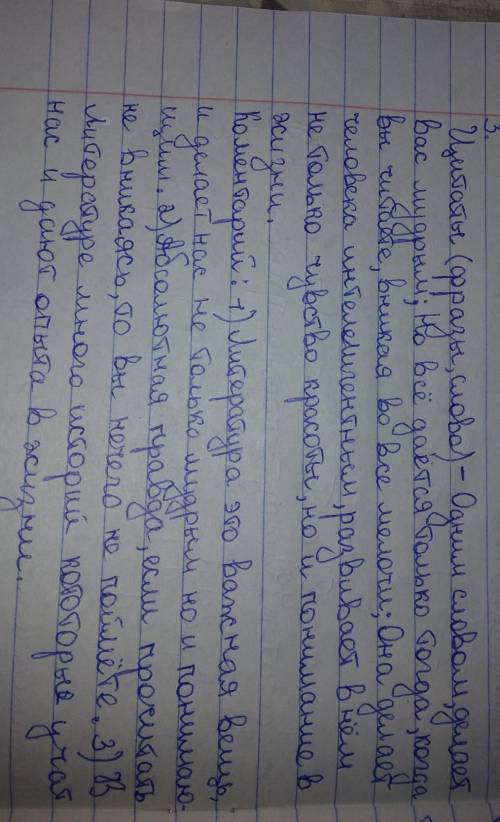 3.
Цитаты (фразы, слова) - Одним словом, делает
вас мудрым; Но всё даётся только тогда, когда
вы читаете, вникая во все мелочи; Она делает
человека интелегентным, развивает в нём
не только чувство красоты, но и понимание в
жизни.
Коментарий: 1) Литература это важная вещь,
и делает нас не только мудрым но и понимаю-
щим. 2) Абсолютная правда, если прочитать
не вникаясь, то вы нечего не поймёте. 3) В
Литературе много историй кототорые учат
нас и дают опыта в жизни.